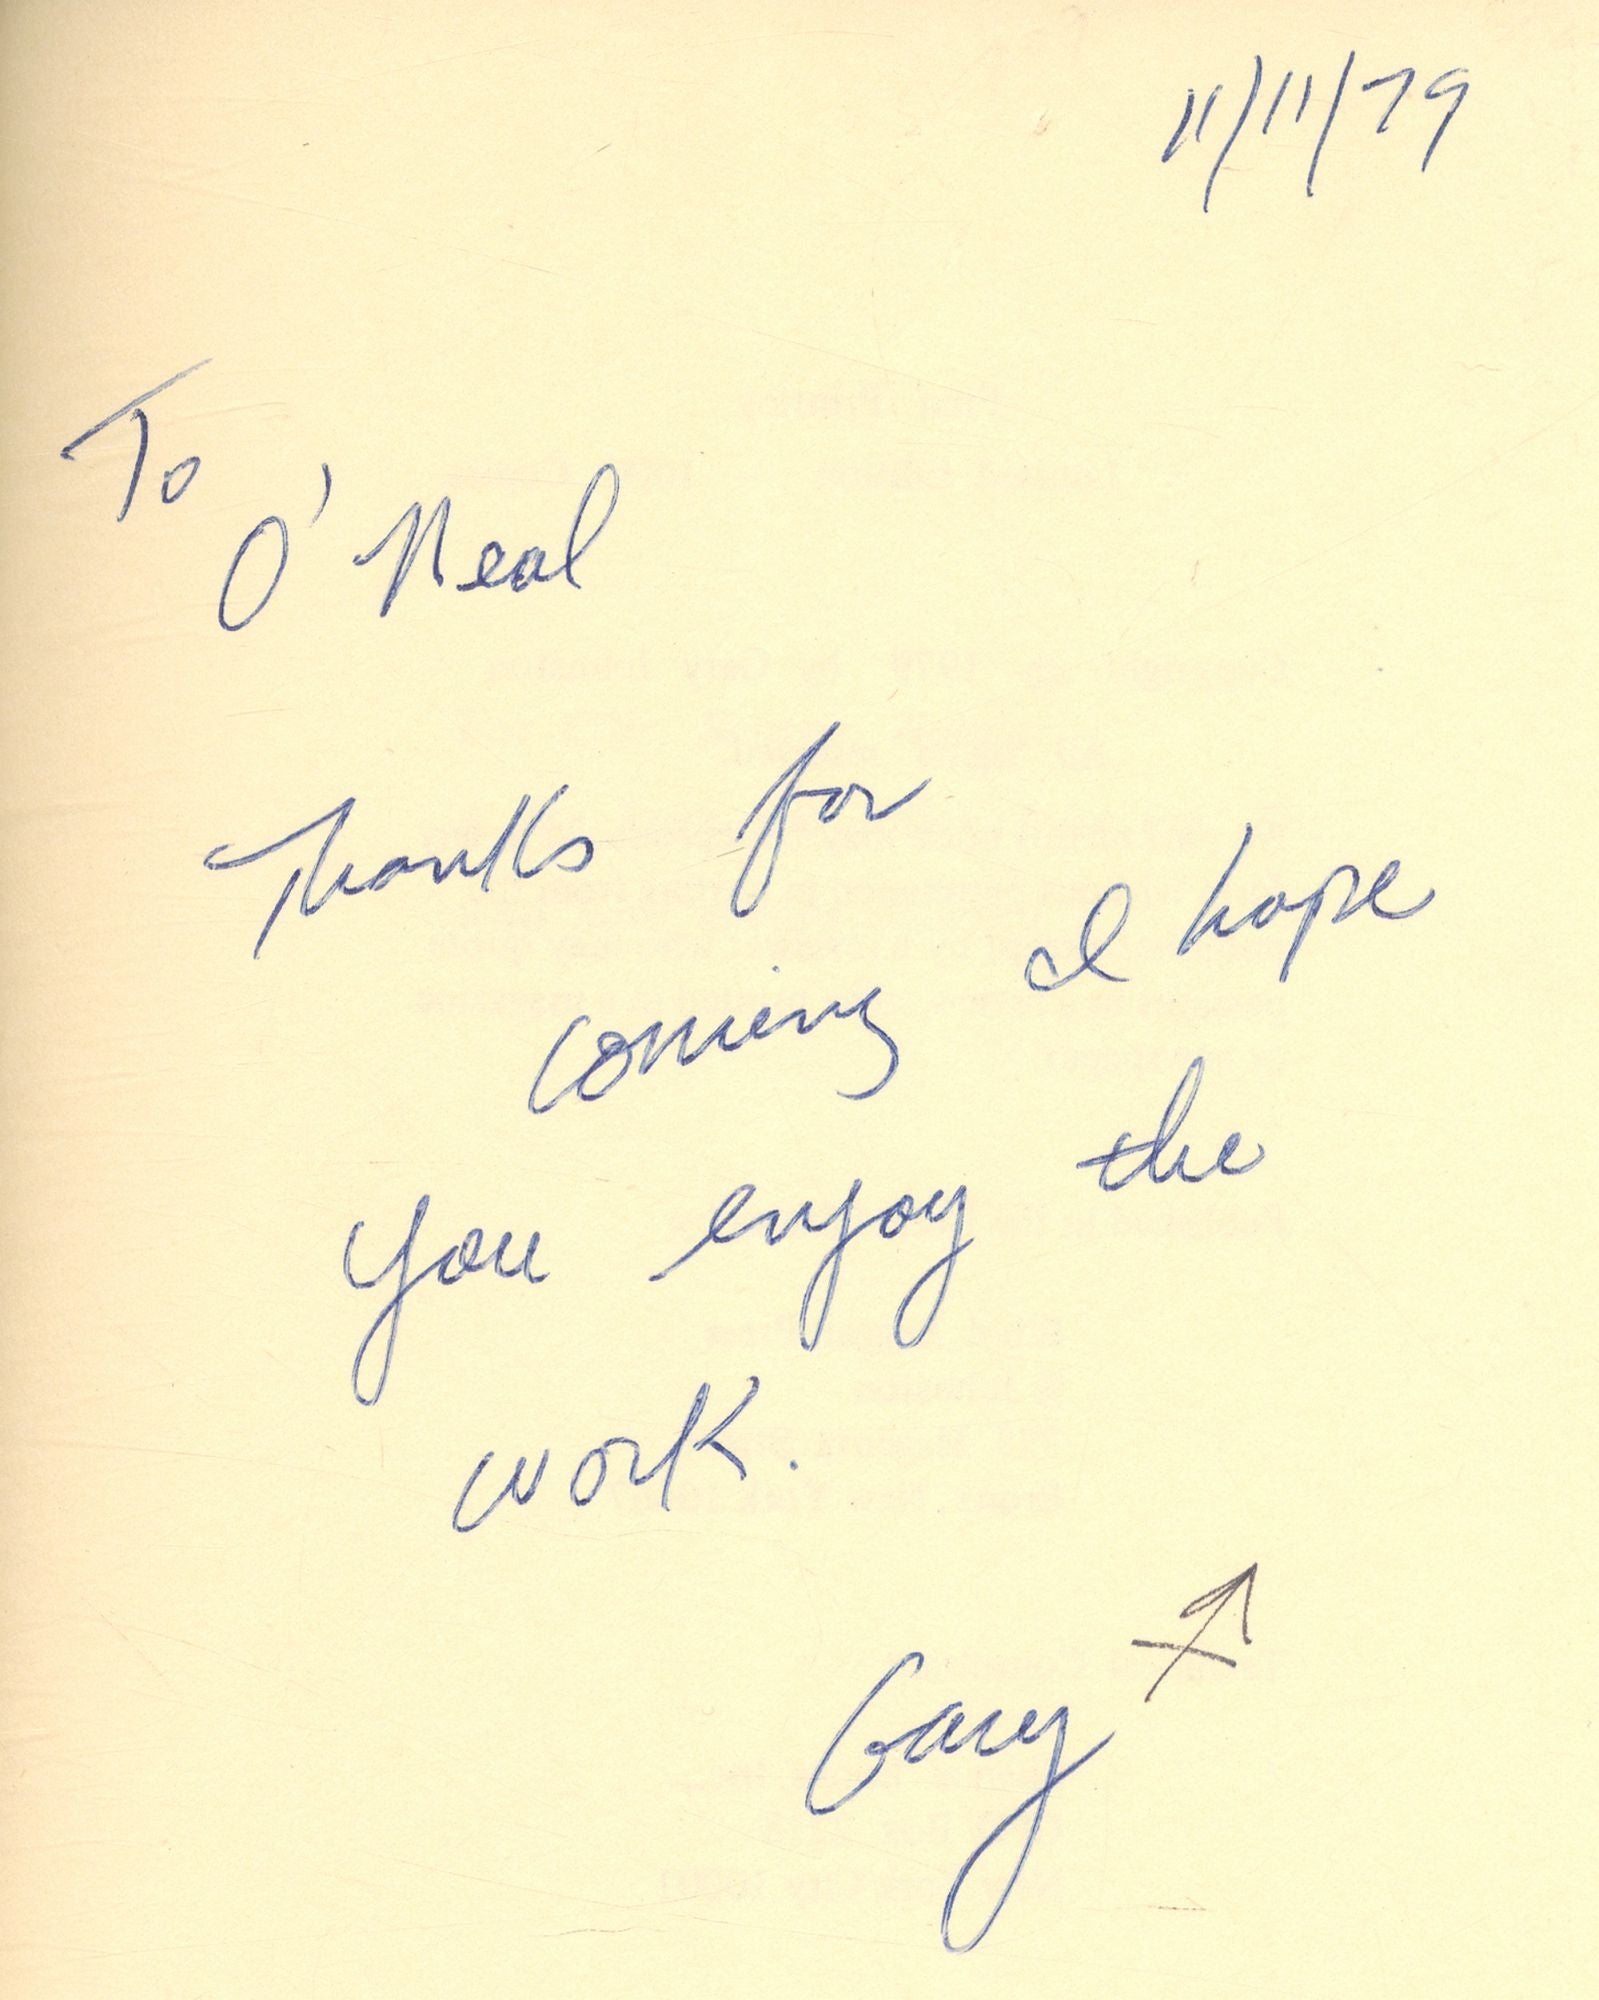 11/11/79
To
O'Neal
Thanks for
coming I hope
you enjoy the
work.
Gary